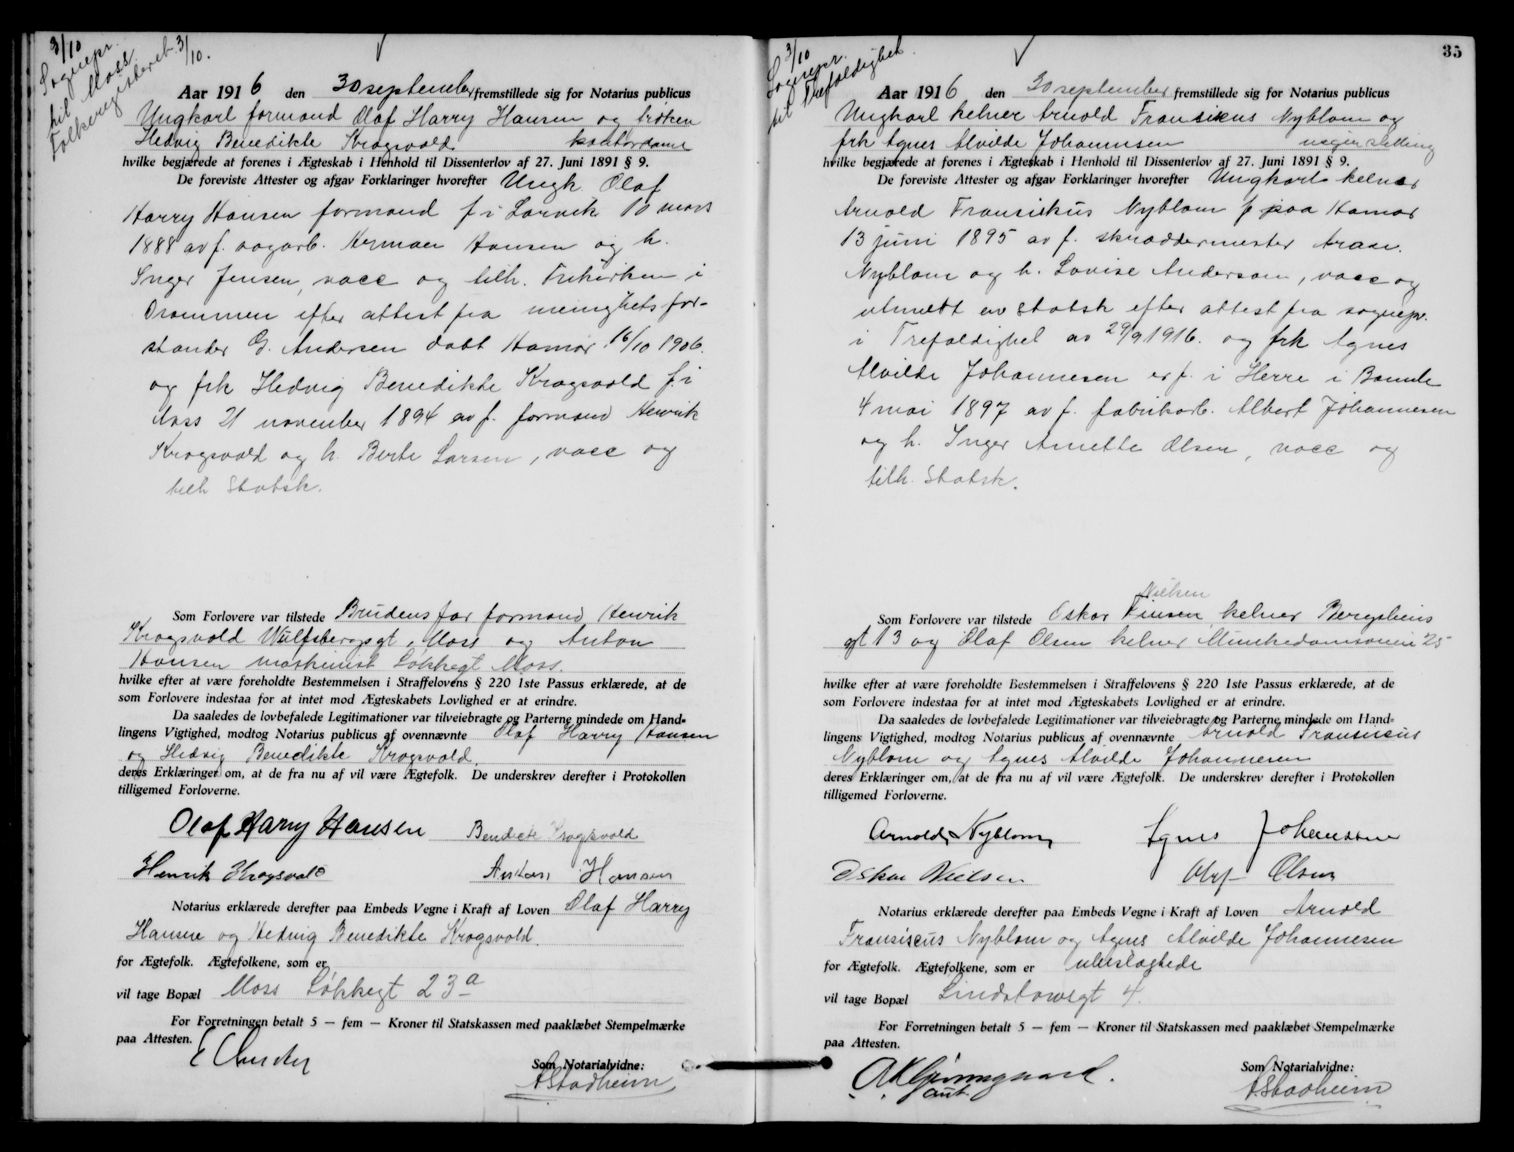 3/10
Sognepr.
til Moss
Folkeregisteret 3/10.
Aar 1916 den 30 september fremstillede sig for Notarius publicus
Ungkarl formand Olaf Harry Hansen og frøken
Hedvig Benedikte Krogsvold kontordame
hvilke begjærede at forenes i Ægteskab i Henhold til Dissenterlov af 27. Juni 1891 § 9.
De foreviste Attester og afgav Forklaringer hvorefter Ungk. Olaf
Harry Hansen formand f i Larvik 10 mars
1888 av f. sagarb. Herman Hansen og h.
Inger Jensen, vacc og tilh. Frikirken i
Drammen efter attest fra menighetsfor-
stander G. Andersen datt Hamar 16/10 1906.
og frk Hedvig Benedikte Krogsvold f i
Moss 21 november 1894 av f. formand Henrik
Krogsvold og h. Berte Larsen, vacc og
tilh Statsk.
Som Forlovere var tilstede Brudens far formand Henrik
Krogsvold Wulfsbergsgt. Moss og Anton
Hansen maskinist Løkkegt Moss.
hvilke efter at være foreholdte Bestemmelsen i Straffelovens § 220 1ste Passus erklærede, at de
som Forlovere indestaa for at intet mod Ægteskabets Lovlighed er at erindre.
Da saaledes de lovbefalede Legitimationer var tilveiebragte og Parterne mindede om Hand-
lingens Vigtighed, modtog Notarius publicus af ovennævnte Olaf Harry Hansen
og Hedvig Benedikte Krogsvold.
deres Erklæringer om, at de fra nu af vil være Ægtefolk. De underskrev derefter i Protokollen
tilligemed Forloverne.
Olaf Harry Hansen Bendicte Krogsvold
Henrik Krogsvold Anton Hansen
Notarius erklærede derefter paa Embeds Vegne i Kraft af Loven Olaf Harry
Hansen og Hedvig Benedikte Krogsvold.
for Ægtefolk. Ægtefolkene, som er
vil tage Bopæl Moss Løkkegt 23a
For Forretningen betalt 5 — fem — Kroner til Statskassen med paaklæbet Stempelmærke
paa Attesten.
Som Notarialvidne:
AStadheim
35
3/10
Sognepr.
til Trefoldighet
Aar 1916 den 30 september fremstillede sig for Notarius publicus
Ungkarl kelner Arnold Fransiskus Nyblom og
frk Agnes Alvilde Johannesen uegen stilling
hvilke begjærede at forenes i Ægteskab i Henhold til Dissenterlov af 27. Juni 1891 § 9.
De foreviste Attester og afgav Forklaringer hvorefter Ungkarl kelner
Arnold Fransiskus Nyblom f paa Hamar
13 juni 1895 av f. skræddermester Aran.
Nyblom og h. Lovise Anderson, vacc og
utmeldt av statsk efter attest fra sognepr.
i Trefoldighet av 29/9 1916. og frk Agnes
Alvilde Johannesen er f. i Herre i Bamle
4 mai 1897 av f. fabrikarb. Albert Johannesen
og h. Inger Amette Olsen, vacc og
tilh. Statsk.
Nielsen
Som Forlovere var tilstede Oskar Finsen kelner Bergsliens
gt 13 og Olaf Olsen kelner Munkedamsveien 25
hvilke efter at være foreholdte Bestemmelsen i Straffelovens § 220 1ste Passus erklærede, at de
som Forlovere indestaa for at intet mod Ægteskabets Lovlighed er at erindre.
Da saaledes de lovbefalede Legitimationer var tilveiebragte og Parterne mindede om Hand-
lingens Vigtighed, modtog Notarius publicus af ovennævnte Arnold Fransiscus
Nyblom og Agnes Alvilde Johannesen
deres Erklæringer om, at de fra nu af vil være Ægtefolk. De underskrev derefter i Protokollen
tilligemed Forloverne.
Arnold Nyblom Agnes Johannesen
Oskar Nielsen Olaf Olsen
Notarius erklærede derefter paa Embeds Vegne i Kraft af Loven Arnold
Fransiscus Nyblom og Agnes Alvilde Johannesen
for Ægtefolk. Ægtefolkene, som er ubeslægtede
vil tage Bopæl Lindstowsgt 4.
For Forretningen betalt 5 — fem — Kroner til Statskassen med paaklæbet Stempelmærke
paa Attesten.
aut.
Som Notarialvidne:
AStadheim